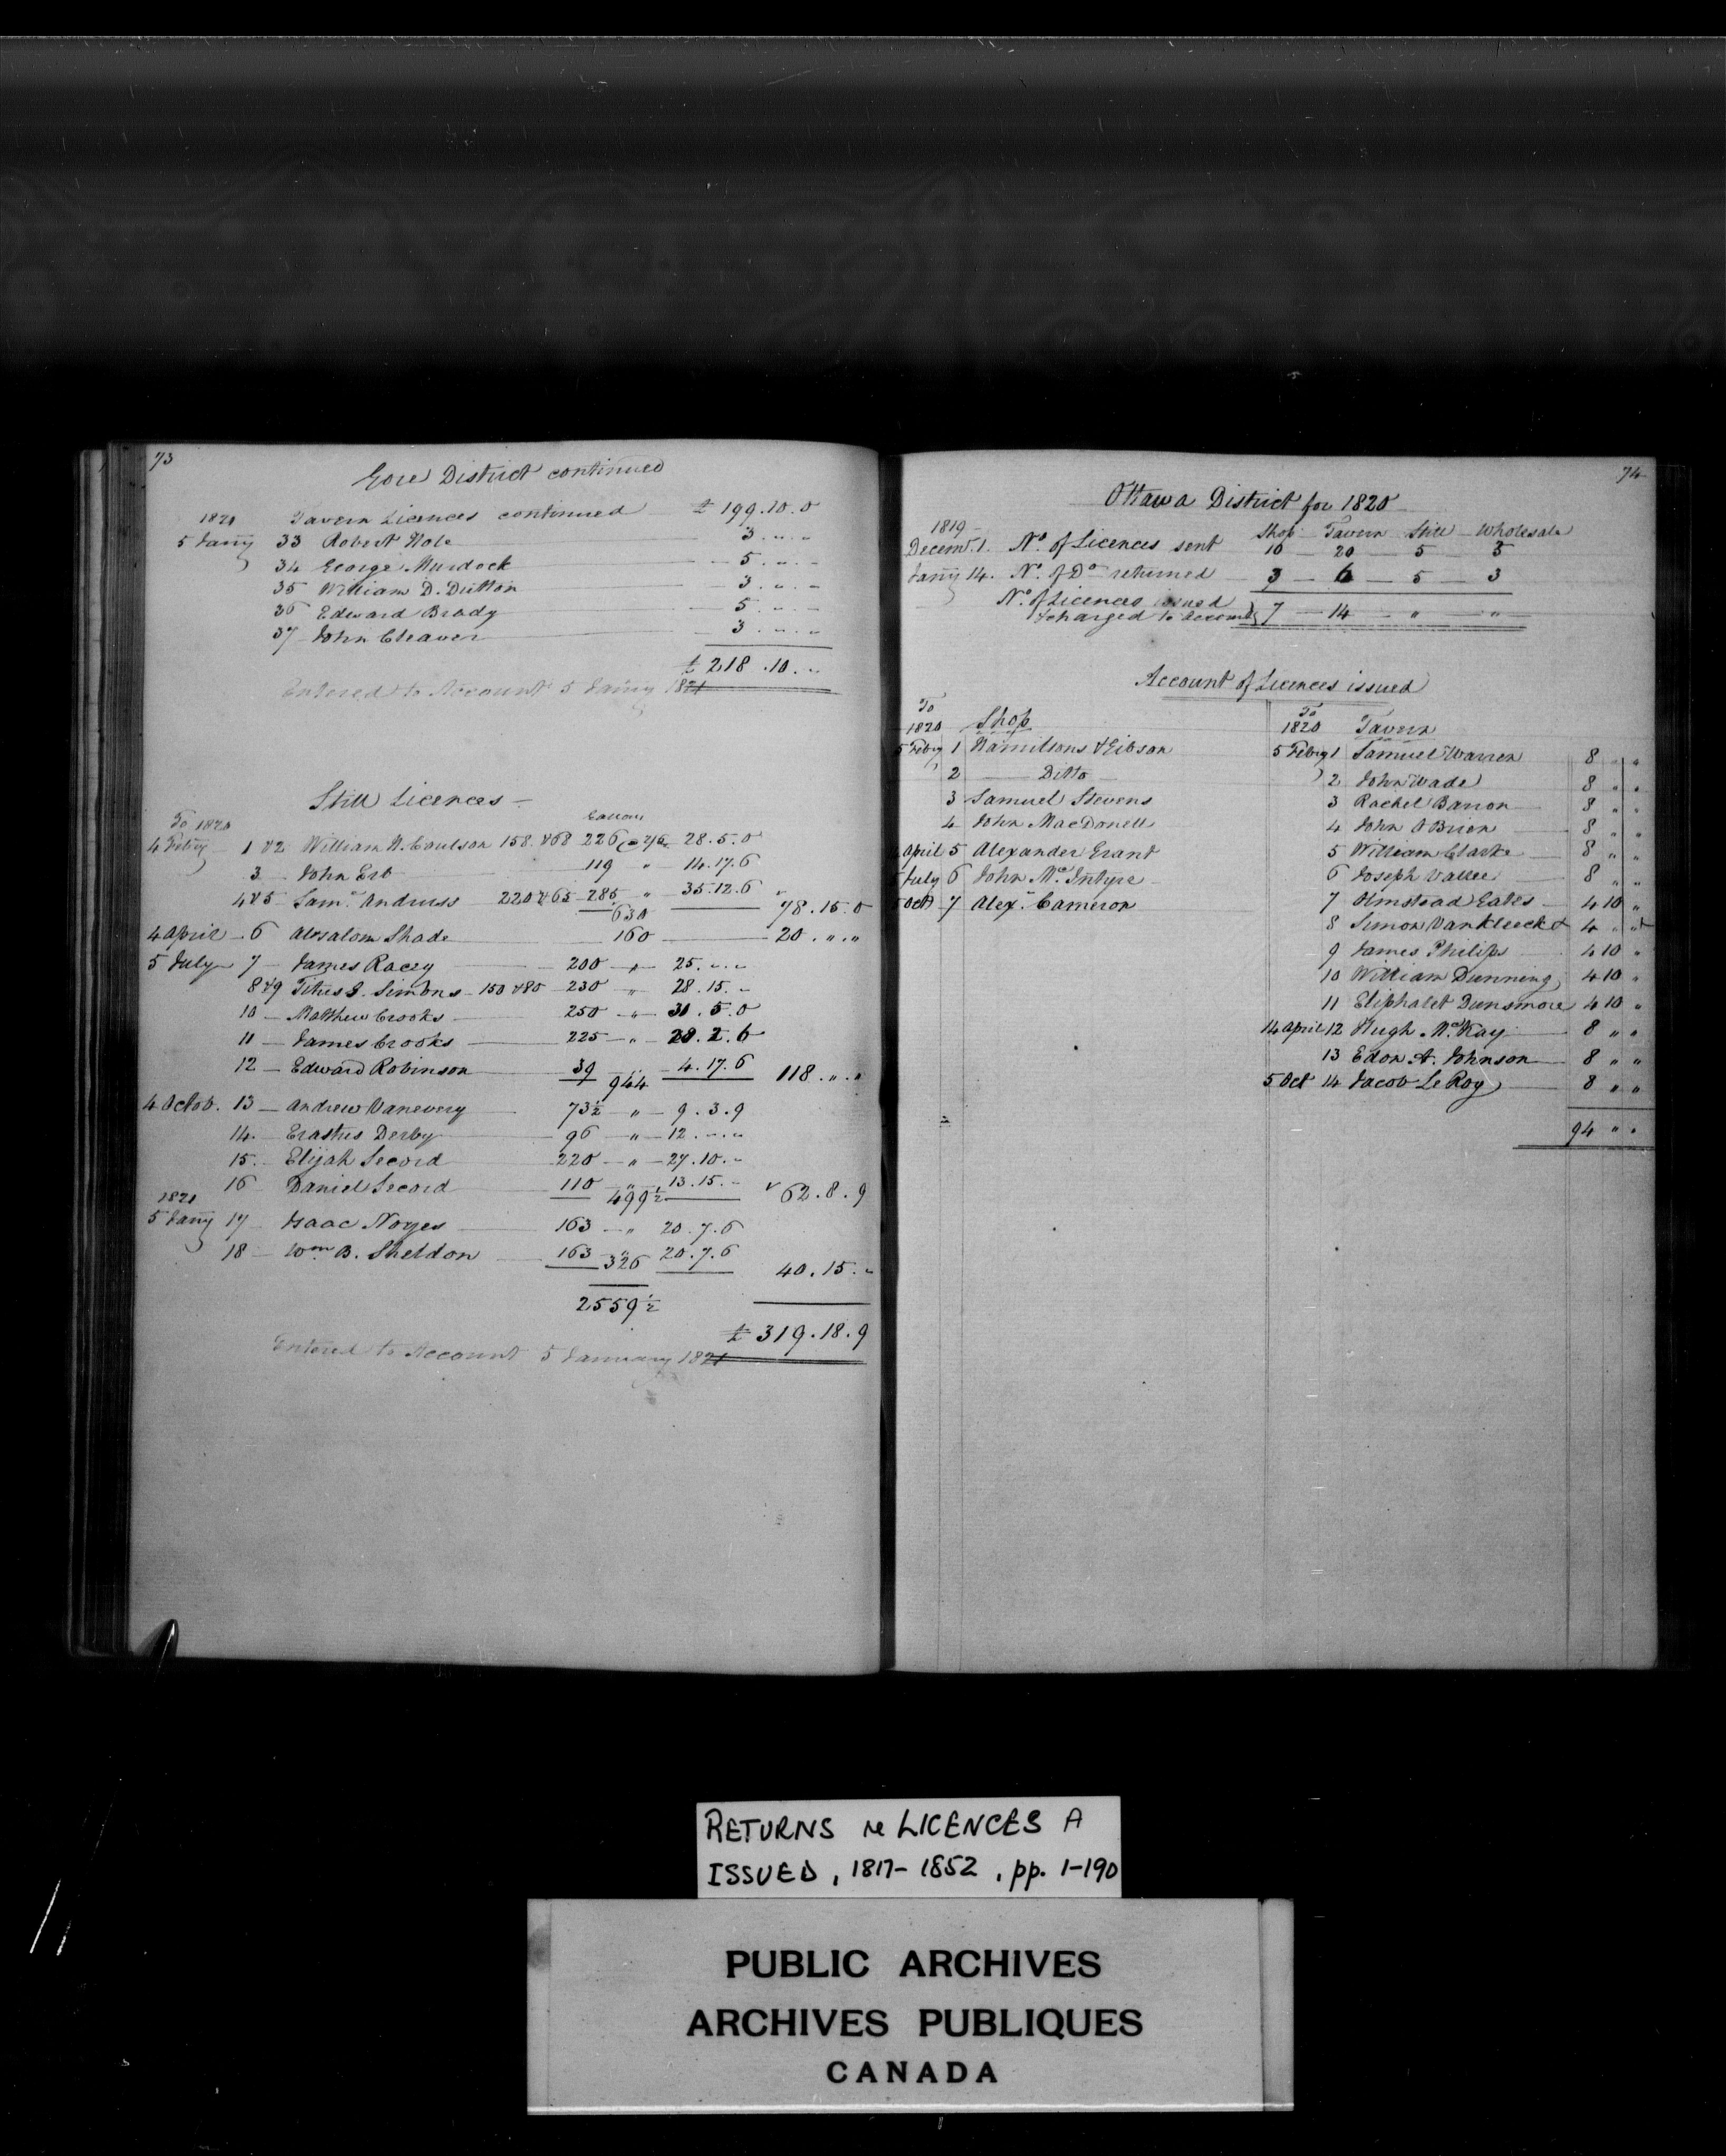 73
Gore District continued
1821 Tavern Licences continued £ 199.10.0
5 Jany 33 Robert Hole 3 . " . "
34 George Murdock 5 . " . "
35 William D. Dutton 3 . " . "
36 Edward Brady 5 . " . "
37 John Cleaver 3 . " . "
£ 218 . 10 . "
Entered to Account 5 Jany 1821
Still Licences
To 1820 Gallons
4 Febry 1 & 2 William H. Coulson 158 & 68 226 @ 2/6 28.5.0
3 John Erb 119 " 14.17.6
4 & 5 Saml. Andruss 220 & 65 285 " 35.12.6
630 78.15.0
4 April 6 Absalom Shade 160 20 . " . "
5 July 7 James Racey 200 " 25 . " . "
8 & 9 Titus G. Simons 150 & 80 230 " 28.15. "
10 Matthew Crooks 250 " 31.5.0
11 James Crooks 225 " 28.2.6
12 Edward Robinson 39 4.17.6
944 118 . " . "
4 Octob. 13 Andrew Vanevery 73½ " 9.3.9
14 Erastus Derby 96 " 12 . " . "
15 Elijah Secord 220 " 27.10. "
16 Daniel Secord 110 " 13.15. "
499½ 62.8.9
1821
5 Jany 17 Isaac Noyes 163 " 20.7.6
18 Wm B. Sheldon 163 " 20.7.6
326 40.15. "
2559½
£ 319.18.9
Entered to Account 5 January 1821
74
Ottawa District for 1820
1819 Shop Tavern Still Wholesale
Decemr. 1. No. of Licences sent 10 20 5 3
Jany 14. No. of Do returned 3 6 5 3
No. of Licences issued
& charged to Account 7 14 " "
Account of Licences issued
To
1820 Shop
5 Febry 1 Hamiltons & Gibson
2 Ditto
3 Samuel Stevens
4 John MacDonell
April 5 Alexander Grant
5 July 6 John McIntyre
5 Oct 7 Alexr. Cameron
To
1820 Tavern
5 Febry 1 Samuel Warren 8 " "
2 John Wade 8 " "
3 Rachel Barron 8 " "
4 John O Brien 8 " "
5 William Clarke 8 " "
6 Joseph Vallee 8 " "
7 Olmstead Eates 4 10 "
8 Simon Vankleeck 4 " "
9 James Philips 4 10 "
10 William Dunning 4 10 "
11 Eliphalet Dunsmore 4 10 "
14 April 12 Hugh McKay 8 " "
13 Edon A. Johnson 8 " "
5 Oct 14 Jacob Le Roy 8 " "
94 " "
RETURNS re LICENCES A
ISSUED, 1817-1852, pp. 1-190
PUBLIC ARCHIVES
ARCHIVES PUBLIQUES
CANADA